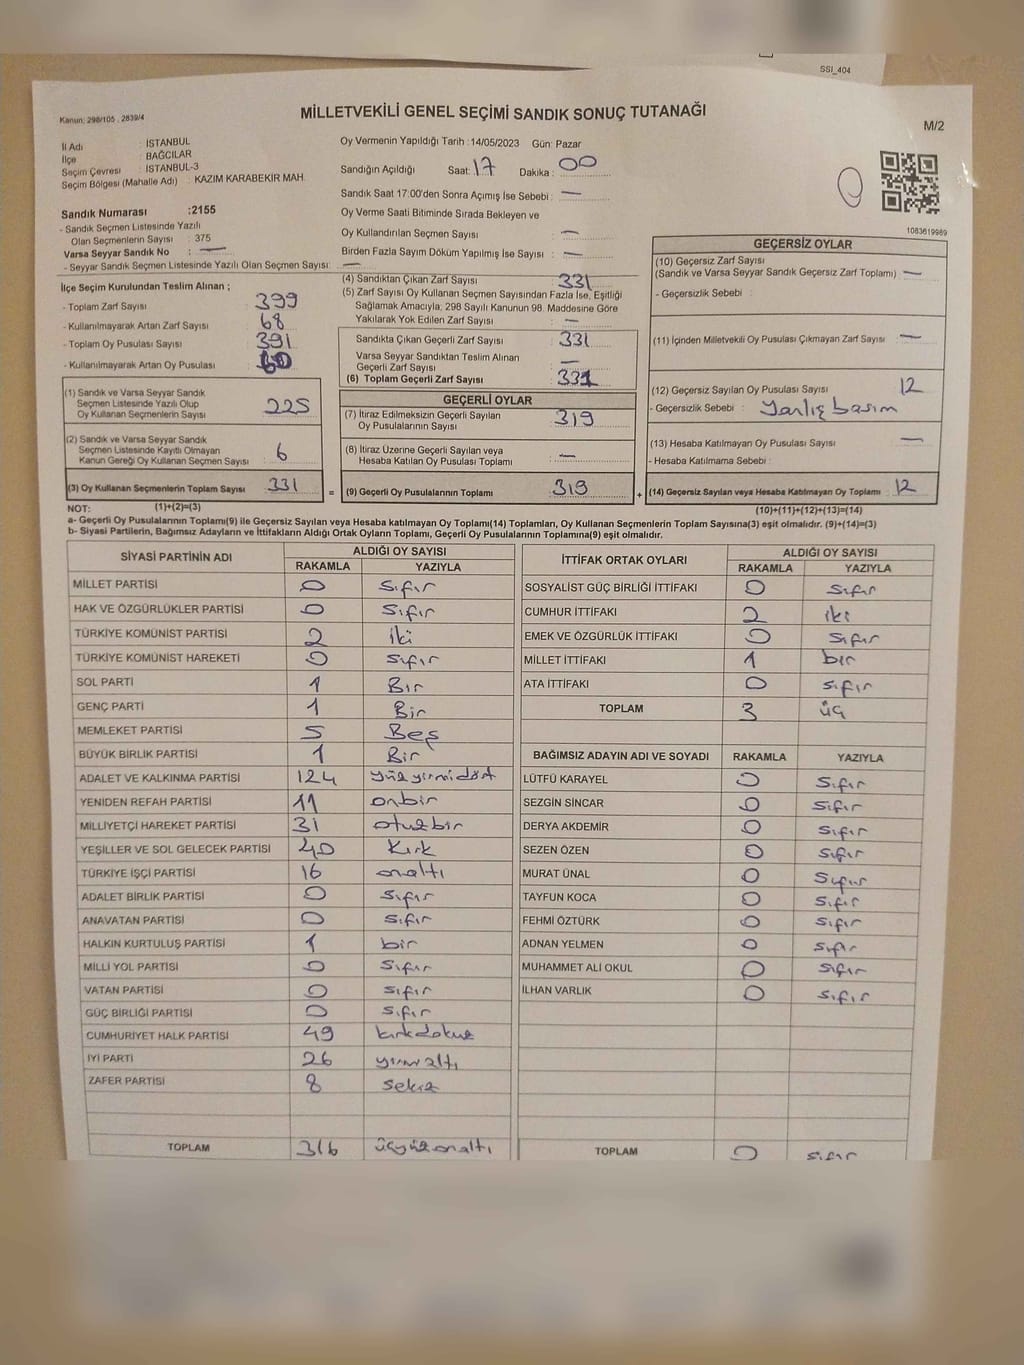 SSI_404
Kanun: 298/105 , 2839/4
MİLLETVEKİLİ GENEL SEÇİMİ SANDIK SONUÇ TUTANAĞI
M/2
İl Adı : İSTANBUL
İlçe : BAĞCILAR
Seçim Çevresi : İSTANBUL-3
Seçim Bölgesi (Mahalle Adı) : KAZIM KARABEKİR MAH.
Sandık Numarası :2155
- Sandık Seçmen Listesinde Yazılı
Olan Seçmenlerin Sayısı : 375
Varsa Seyyar Sandık No : —
- Seyyar Sandık Seçmen Listesinde Yazılı Olan Seçmen Sayısı: —
Oy Vermenin Yapıldığı Tarih :14/05/2023 Gün: Pazar
Sandığın Açıldığı Saat: 17 Dakika : 00
Sandık Saat 17:00'den Sonra Açımış İse Sebebi : —
Oy Verme Saati Bitiminde Sırada Bekleyen ve
Oy Kullandırılan Seçmen Sayısı : —
Birden Fazla Sayım Döküm Yapılmış İse Sayısı : —
1083619989
İlçe Seçim Kurulundan Teslim Alınan ;
- Toplam Zarf Sayısı : 399
- Kullanılmayarak Artan Zarf Sayısı : 68
- Toplam Oy Pusulası Sayısı : 391
- Kullanılmayarak Artan Oy Pusulası : 60
(1) Sandık ve Varsa Seyyar Sandık
Seçmen Listesinde Yazılı Olup
Oy Kullanan Seçmenlerin Sayısı : 225
(2) Sandık ve Varsa Seyyar Sandık
Seçmen Listesinde Kayıtlı Olmayan
Kanun Gereği Oy Kullanan Seçmen Sayısı : 6
(3) Oy Kullanan Seçmenlerin Toplam Sayısı : 331
(4) Sandıktan Çıkan Zarf Sayısı : 331
(5) Zarf Sayısı Oy Kullanan Seçmen Sayısından Fazla İse, Eşitliği
Sağlamak Amacıyla, 298 Sayılı Kanunun 98. Maddesine Göre
Yakılarak Yok Edilen Zarf Sayısı : —
Sandıkta Çıkan Geçerli Zarf Sayısı : 331
Varsa Seyyar Sandıktan Teslim Alınan
Geçerli Zarf Sayısı : —
(6) Toplam Geçerli Zarf Sayısı : 331
GEÇERLİ OYLAR
(7) İtiraz Edilmeksizin Geçerli Sayılan
Oy Pusulalarının Sayısı : 319
(8) İtiraz Üzerine Geçerli Sayılan veya
Hesaba Katılan Oy Pusulası Toplamı : —
= (9) Geçerli Oy Pusulalarının Toplamı : 319 +
GEÇERSİZ OYLAR
(10) Geçersiz Zarf Sayısı
(Sandık ve Varsa Seyyar Sandık Geçersiz Zarf Toplamı) : —
- Geçersizlik Sebebi :
(11) İçinden Milletvekili Oy Pusulası Çıkmayan Zarf Sayısı : —
(12) Geçersiz Sayılan Oy Pusulası Sayısı : 12
- Geçersizlik Sebebi : Yanlış basım
(13) Hesaba Katılmayan Oy Pusulası Sayısı : —
- Hesaba Katılmama Sebebi :
(14) Geçersiz Sayılan veya Hesaba Katılmayan Oy Toplamı : 12
NOT: (1)+(2)=(3) (10)+(11)+(12)+(13)=(14)
a- Geçerli Oy Pusulalarının Toplamı(9) ile Geçersiz Sayılan veya Hesaba katılmayan Oy Toplamı(14) Toplamları, Oy Kullanan Seçmenlerin Toplam Sayısına(3) eşit olmalıdır. (9)+(14)=(3)
b- Siyasi Partilerin, Bağımsız Adayların ve İttifakların Aldığı Ortak Oyların Toplamı, Geçerli Oy Pusulalarının Toplamına(9) eşit olmalıdır.
SİYASİ PARTİNİN ADI ALDIĞI OY SAYISI
RAKAMLA YAZIYLA
MİLLET PARTİSİ 0 sıfır
HAK VE ÖZGÜRLÜKLER PARTİSİ 0 sıfır
TÜRKİYE KOMÜNİST PARTİSİ 2 iki
TÜRKİYE KOMÜNİST HAREKETİ 0 sıfır
SOL PARTİ 1 Bir
GENÇ PARTİ 1 Bir
MEMLEKET PARTİSİ 5 Beş
BÜYÜK BİRLİK PARTİSİ 1 Bir
ADALET VE KALKINMA PARTİSİ 124 yüzyirmidört
YENİDEN REFAH PARTİSİ 11 onbir
MİLLİYETÇİ HAREKET PARTİSİ 31 otuzbir
YEŞİLLER VE SOL GELECEK PARTİSİ 40 Kırk
TÜRKİYE İŞÇİ PARTİSİ 16 onaltı
ADALET BİRLİK PARTİSİ 0 sıfır
ANAVATAN PARTİSİ 0 sıfır
HALKIN KURTULUŞ PARTİSİ 1 bir
MİLLİ YOL PARTİSİ 0 sıfır
VATAN PARTİSİ 0 sıfır
GÜÇ BİRLİĞİ PARTİSİ 0 sıfır
CUMHURİYET HALK PARTİSİ 49 kırkdokuz
İYİ PARTİ 26 yirmialtı
ZAFER PARTİSİ 8 sekiz
TOPLAM 316 üçyüzonaltı
İTTİFAK ORTAK OYLARI ALDIĞI OY SAYISI
RAKAMLA YAZIYLA
SOSYALİST GÜÇ BİRLİĞİ İTTİFAKI 0 sıfır
CUMHUR İTTİFAKI 2 iki
EMEK VE ÖZGÜRLÜK İTTİFAKI 0 sıfır
MİLLET İTTİFAKI 1 bir
ATA İTTİFAKI 0 sıfır
TOPLAM 3 üç
BAĞIMSIZ ADAYIN ADI VE SOYADI RAKAMLA YAZIYLA
LÜTFÜ KARAYEL 0 sıfır
SEZGİN SİNCAR 0 sıfır
DERYA AKDEMİR 0 sıfır
SEZEN ÖZEN 0 sıfır
MURAT ÜNAL 0 sıfır
TAYFUN KOCA 0 sıfır
FEHMİ ÖZTÜRK 0 sıfır
ADNAN YELMEN 0 sıfır
MUHAMMET ALİ OKUL 0 sıfır
İLHAN VARLIK 0 sıfır
TOPLAM 0 sıfır